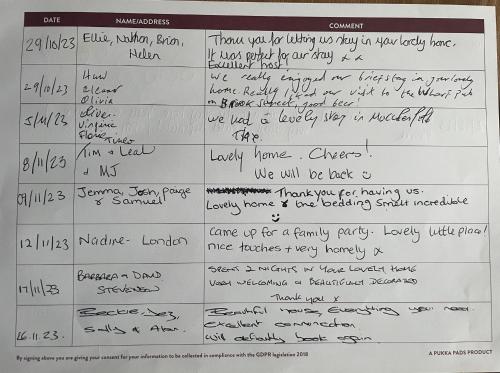 DATE NAME/ADDRESS COMMENT
29/10/23 Ellie, Nathan, Brian, Helen
Thank you for letting us stay in your lovely home.
It was perfect for our stay x x
Excellent host!
29/10/23 Huw
Eleanor
Olivia
We really enjoyed our brief stay in your lovely
home. Really liked our visit to the Wharf Pub
on Brook Street, good beer!
5/11/23 Oliver
Virginie
Florie
Timeo
we had a lovely stay in Macclesfield
8/11/23 Tim & Leah
& MJ
Lovely home. Cheers!
We will be back ☺
09/11/23 Jemma, Josh, Paige
& Samuel
Thank you for having us.
Lovely home & the bedding smelt incredible
☺
12/11/23 Nadine - London
Came up for a family party. Lovely little place!
nice touches + very homely x
17/11/23 BARBARA & DAVID
STEVENSON
SPENT 2 NIGHTS IN YOUR LOVELY HOME
VERY WELCOMING & BEAUTIFULLY DECORATED
Thank you x
26.11.23. Beckie, Jez,
Sally & Alan.
Beautiful house, Everything you need.
Excellent communication.
Will definitely book again.
By signing above you are giving your consent for your information to be collected in compliance with the GDPR legislation 2018
A PUKKA PADS PRODUCT